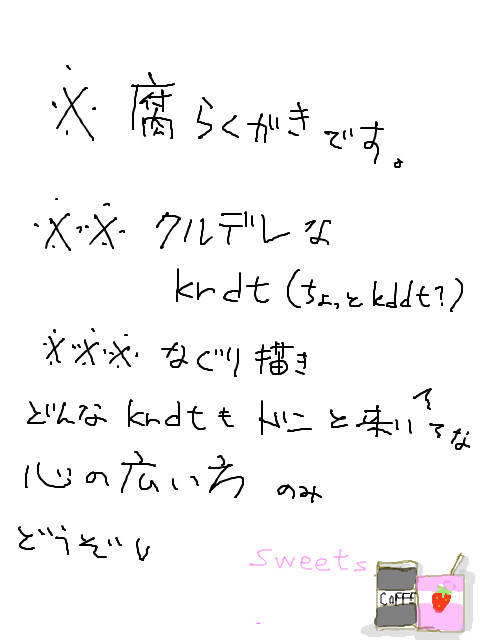 ※ 腐らくがきです。
※※ クルデレな
krdt(ちょっとkddt?)
※※※ なぐり描き
どんなkrdtもドンと来いってな
心の広い方 のみ
どうぞい
sweets
COFFE